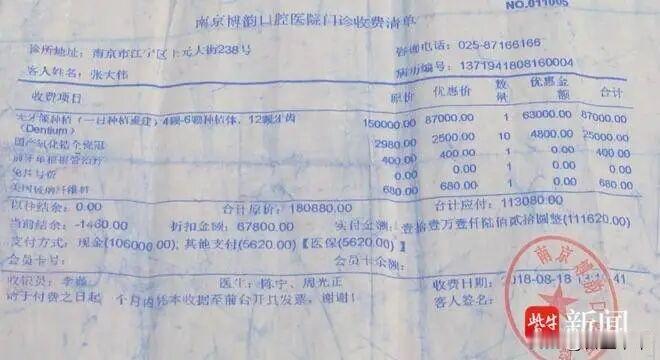 NO.011005
南京博韵口腔医院门诊收费清单
诊所地址：南京市江宁区上元大街238号 咨询电话：025-87166166
客人姓名：张大伟 病历编号：1371941808160004
收费项目 原价 优惠价 数量 优惠金额 合计
无牙颌种植（一日种植重建）4颗-6颗种植体，12颗牙齿(Dentium) 150000.00 87000.00 1 63000.00 87000.00
国产氧化锆全瓷冠 2980.00 2500.00 10 4800.00 25000.00
前牙单根根管治疗 400.00 400.00 1 0.00 400.00
0.00
美国玻璃纤维桩 680.00 680.00 1 0.00 680.00
以往结余：0.00 合计原价：180880.00 合计应付：113080.00
当前结余：-1460.00 折扣金额：67800.00 实付金额：壹拾壹万壹仟陆佰贰拾圆整(111620.00)
支付方式：现金(106000.00); 其他支付(5620.00)【医保(5620.00)】
会员卡号： 会员卡余额：
收银员：李 医生：陈宁、周光正 收费日期：2018-08-18
请于付费之日起一个月内凭本收据至前台开具发票，谢谢！ 客人签名：
南京博韵口
紫牛新闻